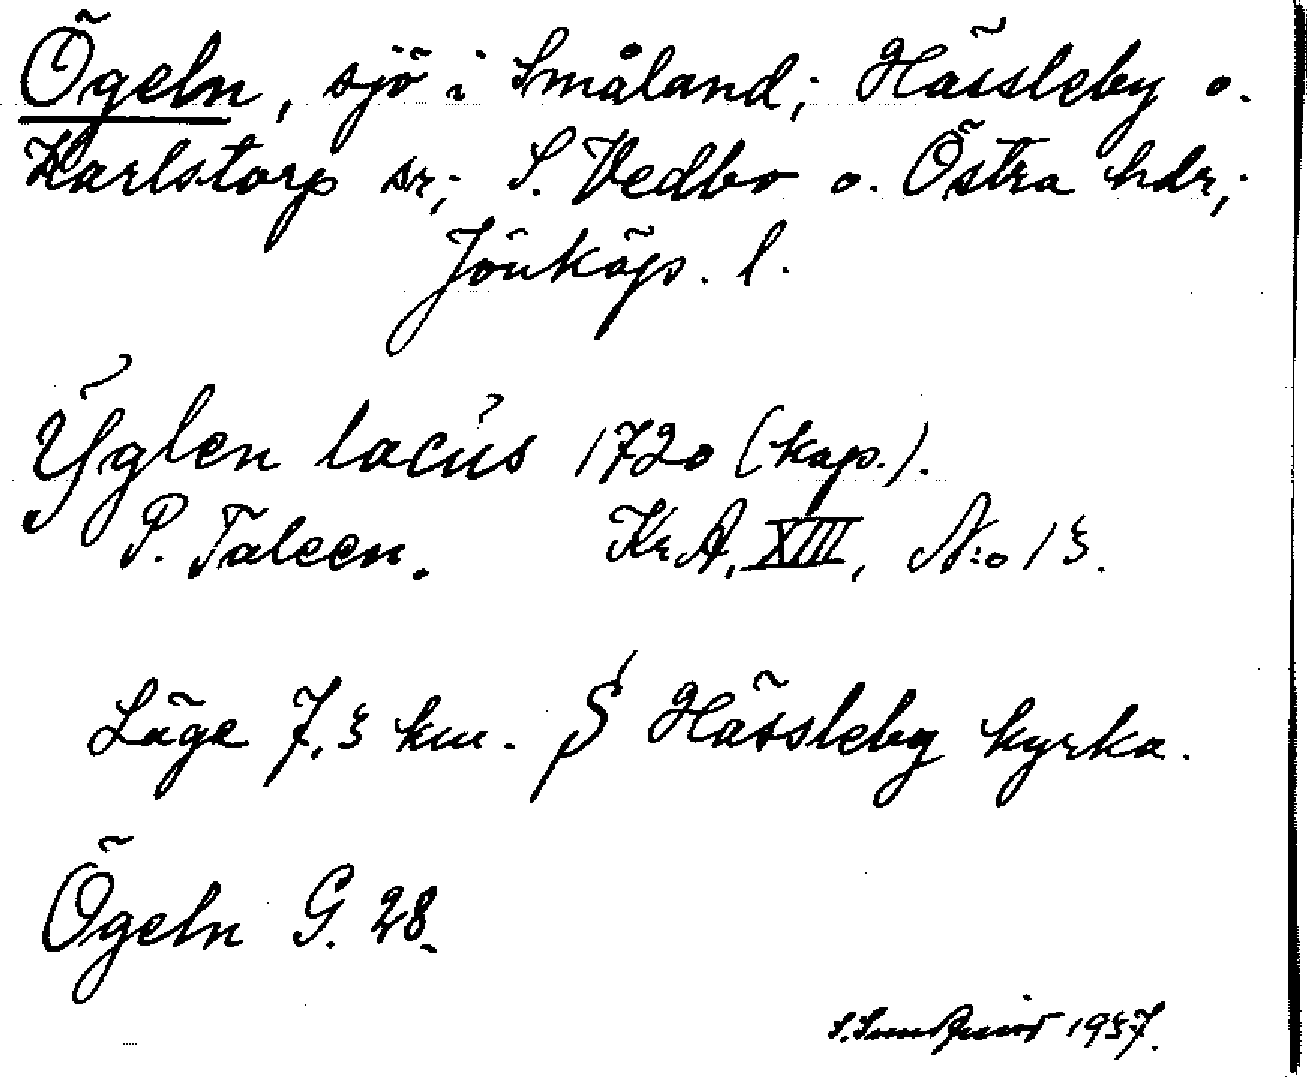 Ögeln, sjö i Småland; Hässleby o.
Karlstorp sr; S. Vedbo o. Östra hdr;
Jönköps. l.
Ÿglen lacus 1720 (kap.).
P. Taleen. KrA, XIII, N:o 15.
Läge 7,5 km. S Hässleby kyrka.
Ögeln G. 28.
1957.